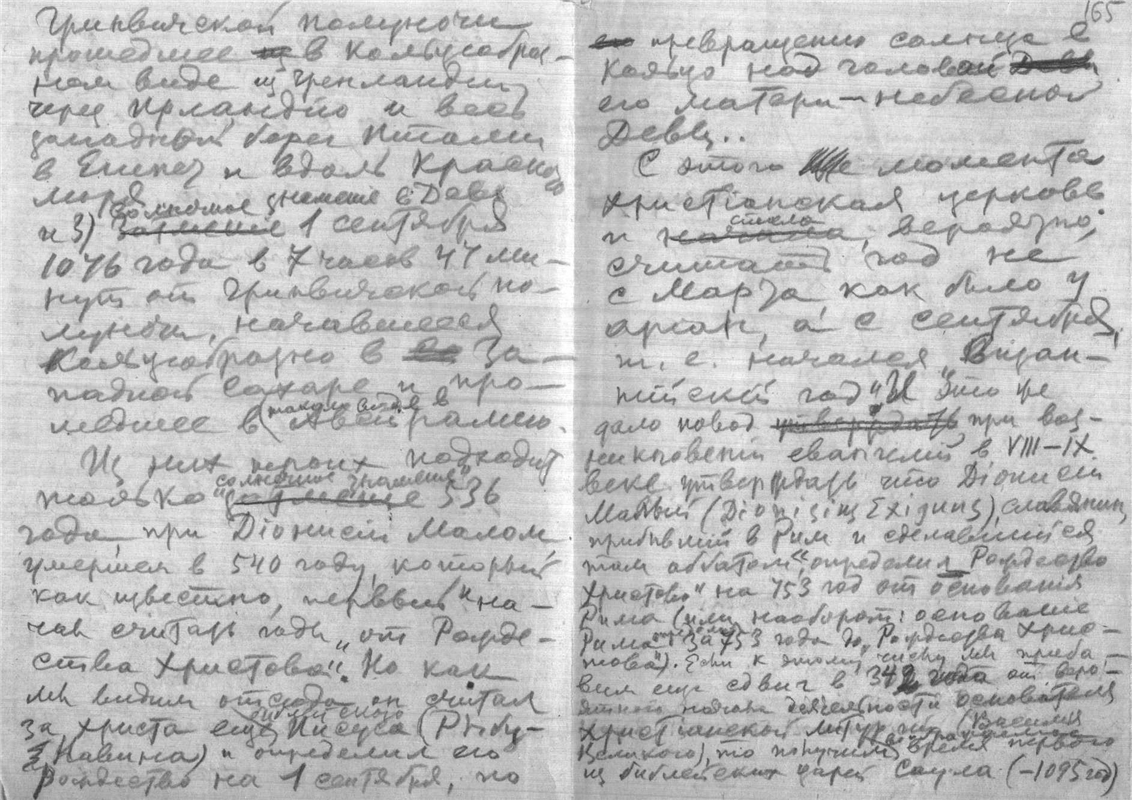 Гринвичской полуночи
прошедшее в кольцеобраз-
ном виде из Гренландии
через Ирландию и весь
западный берег Италии
в Египет и вдоль Красного
моря
солнечное знамение в Деве
и 3) затмение 1 сентября
1076 года в 7 часов 47 ми-
нут от Гринвичской по-
луночи, начавшееся
кольцеобразно в За-
падной Сахаре и про-
шедшее в (таком виде в) Австралию.
Из них троих подходит
солнечное знамение"
только "затмение 536
года, при Діонисіи Малом
умершем в 540 году, который
как известно, первый "на-
чал считать годы "от Рожде-
ства Христова". Но как
мы видим отсюда он считал
библейского
за Христа ещё Іисуса (Рыбу-
Навина) и определил его
Рождество на 1 сентября, по
165
превращению солнца в
кольцо над головой
его матери — небесной
Девы..
С этого момента
христіанская церковь
стала
и начала, вероятно,
считать год не
с Марта как было у
ариан, а с сентября,
т. е. начался Визан-
тійскій год. "И это же
дало повод утверждать при воз-
никновеніи евангелий в VIII–IX
веке утверждать что Діонисій
Малый (Dionizius Exiguus), славянин
прибывшій в Рим и сделавшійся
там аббатом "определил Рождество
Христово" на 753 год от основания
Рима (или наоборот: основание
Рима за 753 года до Рождества Хрис-
това"). Если к этому числу мы приба-
вим еще сдвиг в 342 года от веро-
ятного начала деятельности основателя
Христианской литургии (Василия
Великого), то получим время первого
из библейских царей Саула (–1095 год)